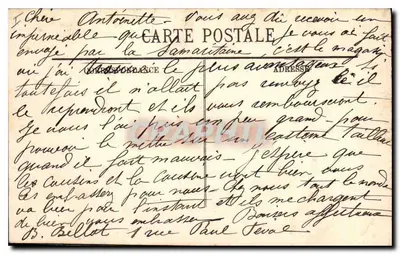 Chère Antoinette. Vous avez dû recevoir un
imperméable que je vous ai fait
CARTE POSTALE
envoyé par la Samaritaine, c'est le magasin
CORRESPONDANCE
ADRESSE
où j'ai le plus avantageux si
toutefois il n'allait pas renvoyez le il
le reprendront et ils vous rembourseront.
Je vous l'ai pris un peu grand pour
pouvoir le mettre sur un costume tailleur
quand il fait mauvais. J'espère que
les cousins et la cousine vont bien vous
les embrasser pour nous. Chez nous tout le monde
va bien pour l'instant et ils me chargent
de bien vous embrasser Baisers affectueux
B. Billot 1 rue Paul Feval